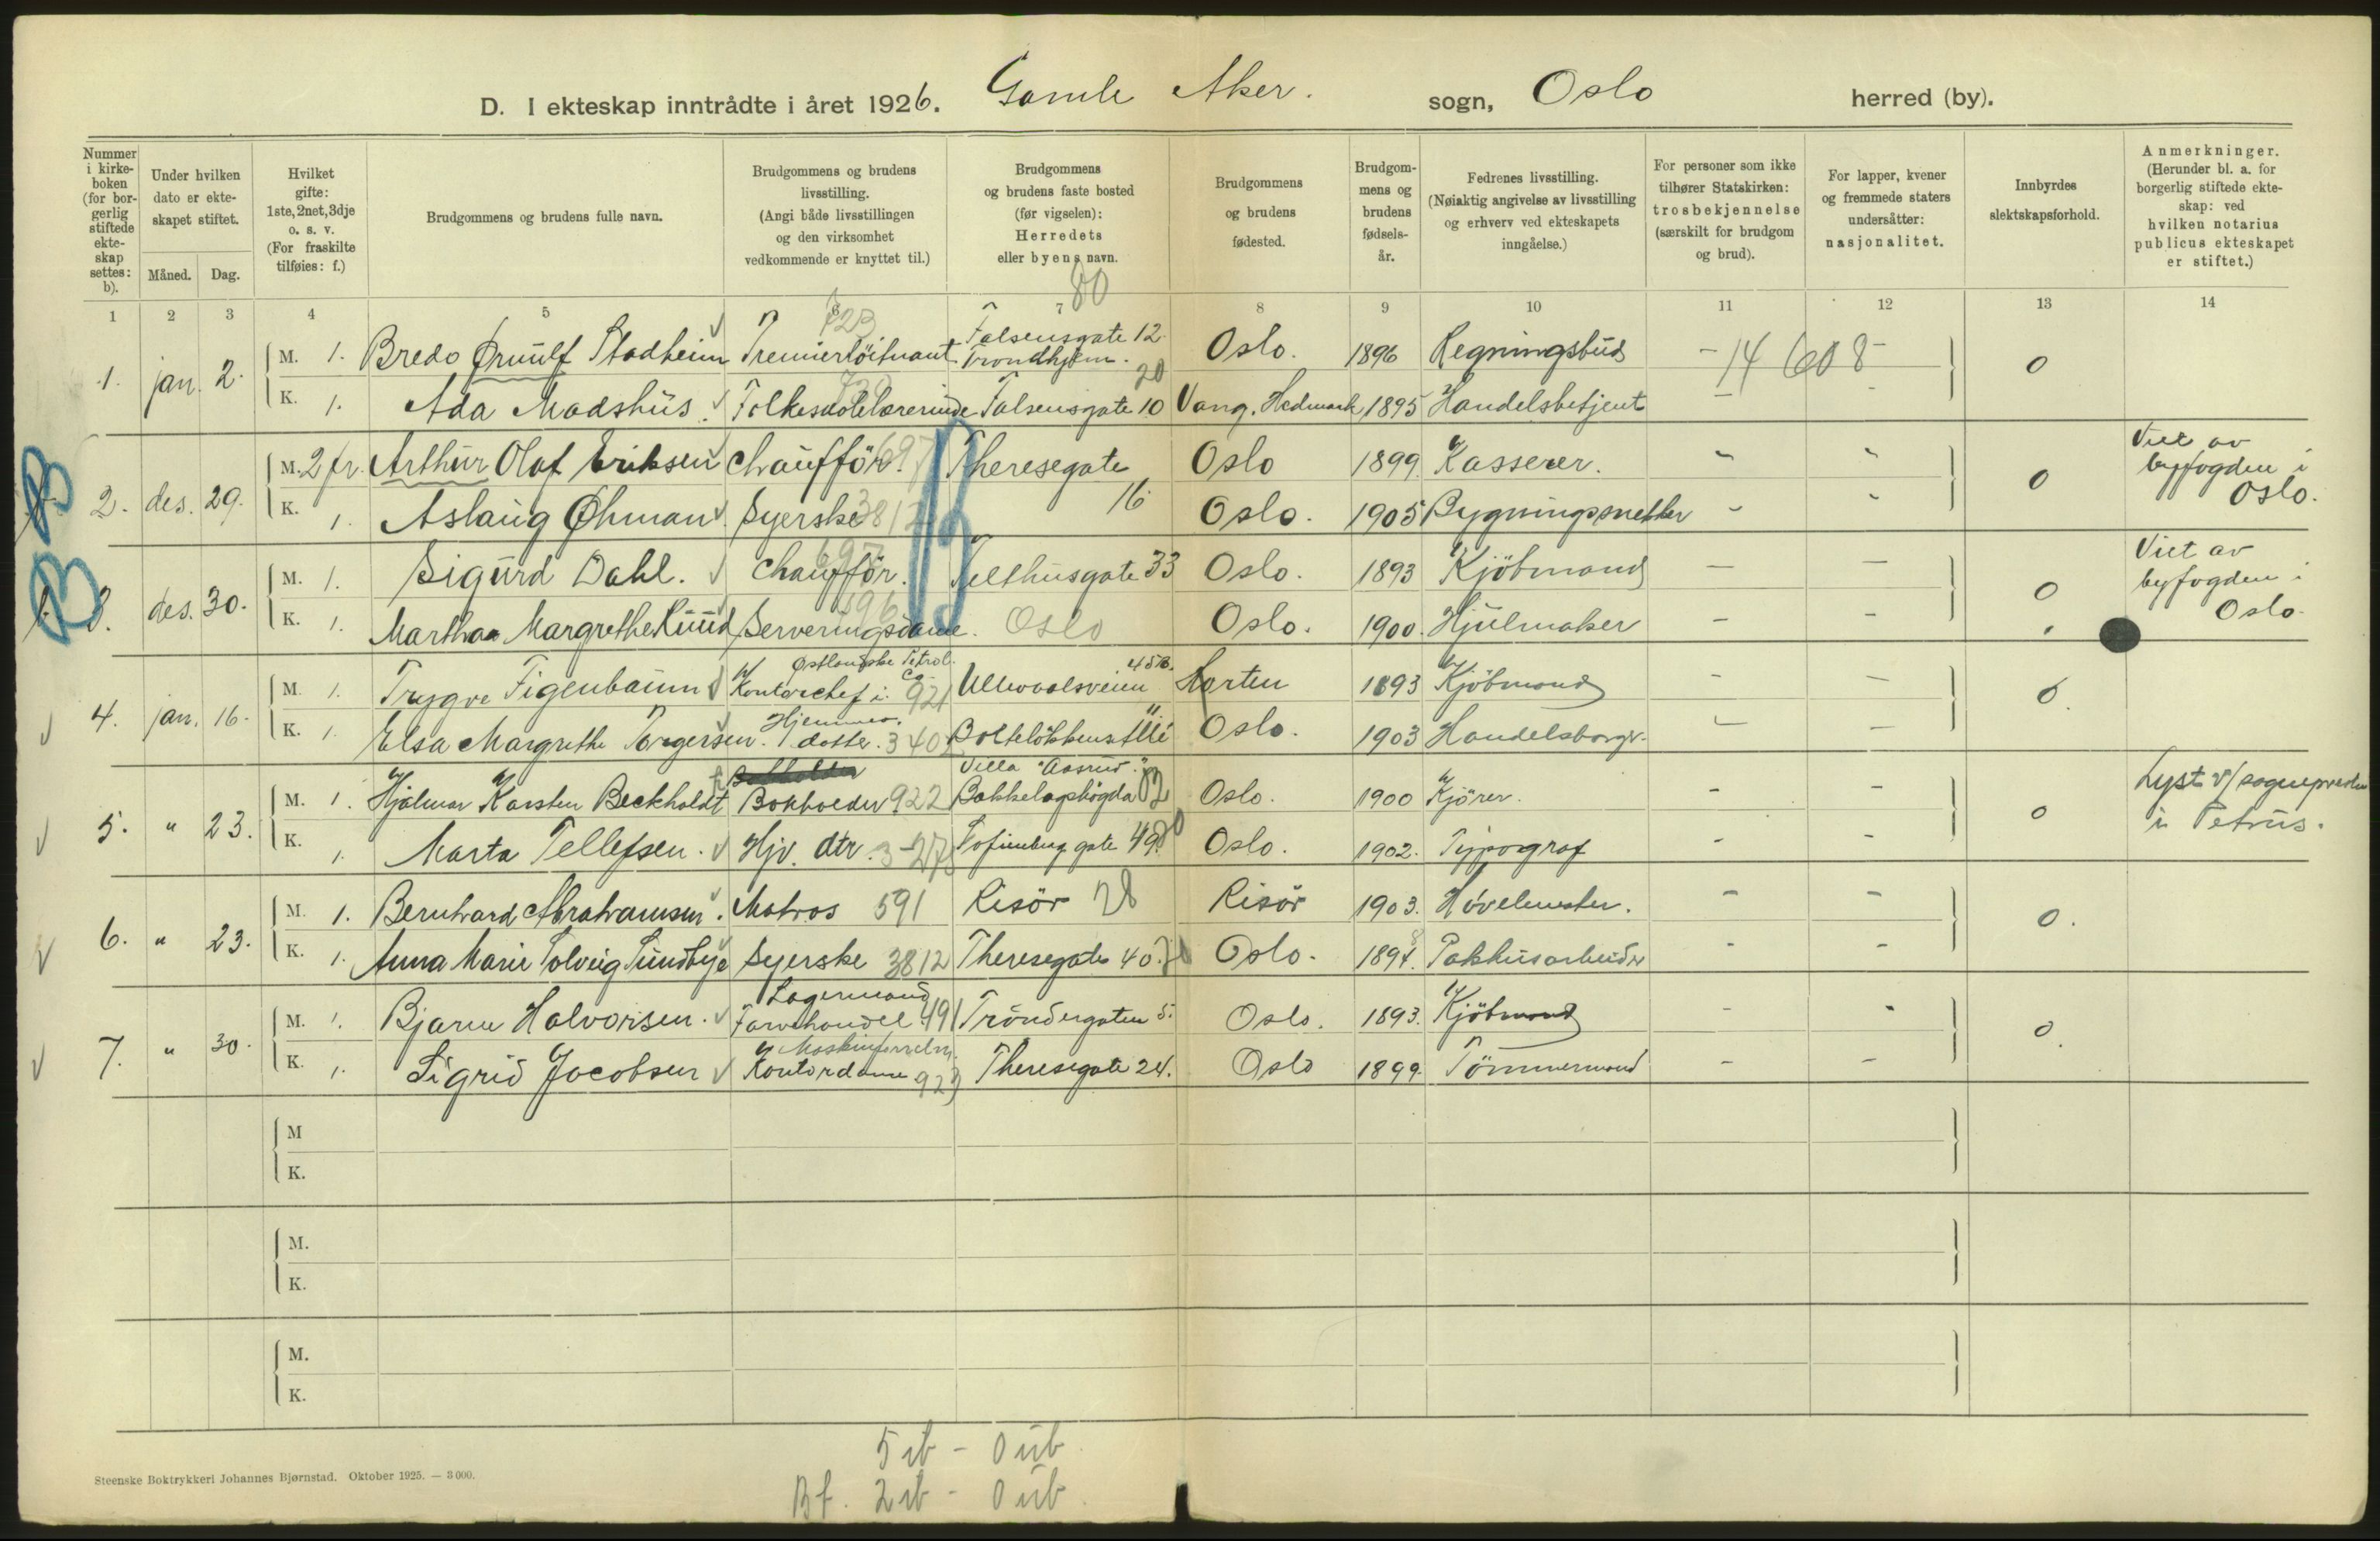 D. I ekteskap inntrådte i året 1926. Gamle Aker. sogn, Oslo herred (by).
Nummer i kirke-boken (for bor-gerlig stiftede ekte-skap settes: b).
Under hvilken dato er ekte-skapet stiftet.
Måned. Dag.
Hvilket gifte: 1ste, 2net, 3dje o. s. v. (For fraskilte tilføies: f.)
Brudgommens og brudens fulle navn.
Brudgommens og brudens livsstilling. (Angi både livsstillingen og den virksomhet vedkommende er knyttet til.)
Brudgommens og brudens faste bosted (før vigselen): Herredets eller byens navn.
Brudgommens og brudens fødested.
Brudgom-mens og brudens fødsels-år.
Fedrenes livsstilling. (Nøiaktig angivelse av livsstilling og erhverv ved ekteskapets inngåelse.)
For personer som ikke tilhører Statskirken: trosbekjennelse (særskilt for brudgom og brud).
For lapper, kvener og fremmede staters undersåtter: nasjonalitet.
Innbyrdes slektskapsforhold.
Anmerkninger. (Herunder bl. a. for borgerlig stiftede ekte-skap: ved hvilken notarius publicus ekteskapet er stiftet.)
80
1 2 3 4 5 6 7 8 9 10 11 12 13 14
723
1. jan. 2. M. 1. Bredo Ørnulf Stadheim Premierlöitnant Falsensgate 12. Trondhjem. Oslo. 1896 Regningsbud - 14608 - 0
K. 1. Ada Madshus. Folkeskolelærerinde Falsensgate 10 20 Vang. Hedmark 1895 Handelsbetjent -
B 2. des. 29. M. 2 fr. Arthur Olaf Eriksen Chaufför. 697 Theresegate Oslo 1899. Kasserer. - - 0 Viet av byfogden i Oslo.
K. 1. Aslaug Øhman. Syerske 3812 16 Oslo. 1905 Bygningsmester - -
B 3. des. 30. M. 1. Sigurd Dahl. Chauffør. 697 Telthusgate 33 Oslo. 1893 Kjöbmand - - 0 Viet av byfogden i Oslo.
K. 1. Martha Margrethe Ruud Serveringsdame. 696 Oslo Oslo. 1900. Hjulmaker - -
4. jan. 16. M. 1. Trygve Figenbaum Kontorchef i Østlandske Petrol. Co. 921 Ullevaalsveien 45B. Horten 1893 Kjöbmand - - 0.
K. 1. Elsa Margrethe Torgersen. Hjemmev. datter. 340 Bolteløkkens alle 11 Oslo. 1903 Handelsborger. - -
5. " 23. M. 1. Hjalmar Karsten Beckholdt Bokholder 922 Villa "Aasrud". Bekkelagshögda 02 Oslo. 1900 Kjörer. - - 0 Lyst v/ sognepresten i Petrus.
K. 1. Marta Tellefsen. Hjv. dtr. Sofienberg gate 49. Oslo. 1902. Typograf - -
6. " 23. M. 1. Bernhard Abrahamsen. Matros 591 Risör 28 Risör 1903. Hövelmester. - - 0.
K. 1. Anna Marie Solveig Sundbye Syerske 3812 Theresegate 40. Oslo. 1897. Pakhusarbeider - -
7. " 30. M. 1. Bjarne Halvorsen. Lagermand Farvehandel. 491 Tröndergaten 5. Oslo. 1893. Kjöbmand - - 0.
K. 1. Sigrid Jacobsen Kontordame Maskinforretn. 923 Theresegate 24. Oslo 1899. Tömmermand - -
M
K.
M.
K.
M.
K.
5 ib - 0 ub
Bf. 2 ib - 0 ub
Steenske Boktrykkeri Johannes Bjørnstad. Oktober 1925. — 3 000.